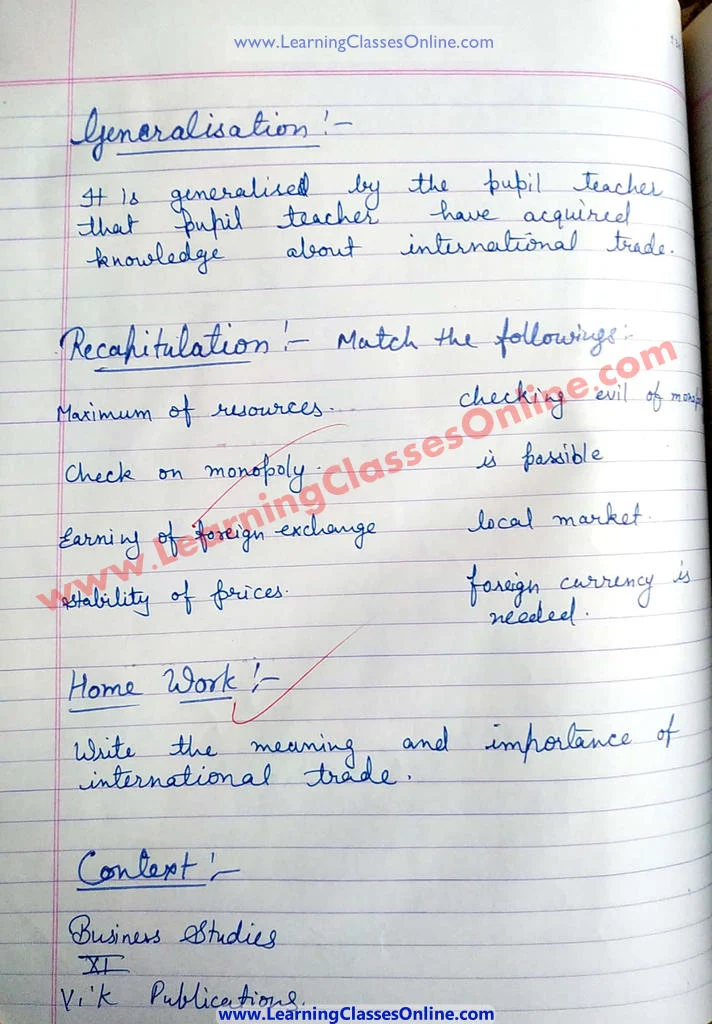 www.LearningClassesOnline.com
Generalisation :-
It is generalised by the pupil teacher
that pupil teacher have acquired
knowledge about international trade.
Recapitulation :- Match the followings:-
Maximum of resources. checking evil of
Check on monopoly. is possible
Earning of foreign exchange local market.
stability of prices. foreign currency is
needed.
www.LearningClassesOnline.com
Home Work :-
Write the meaning and importance of
international trade.
Context :-
Business Studies
XI
V.K Publications.
www.LearningClassesOnline.com